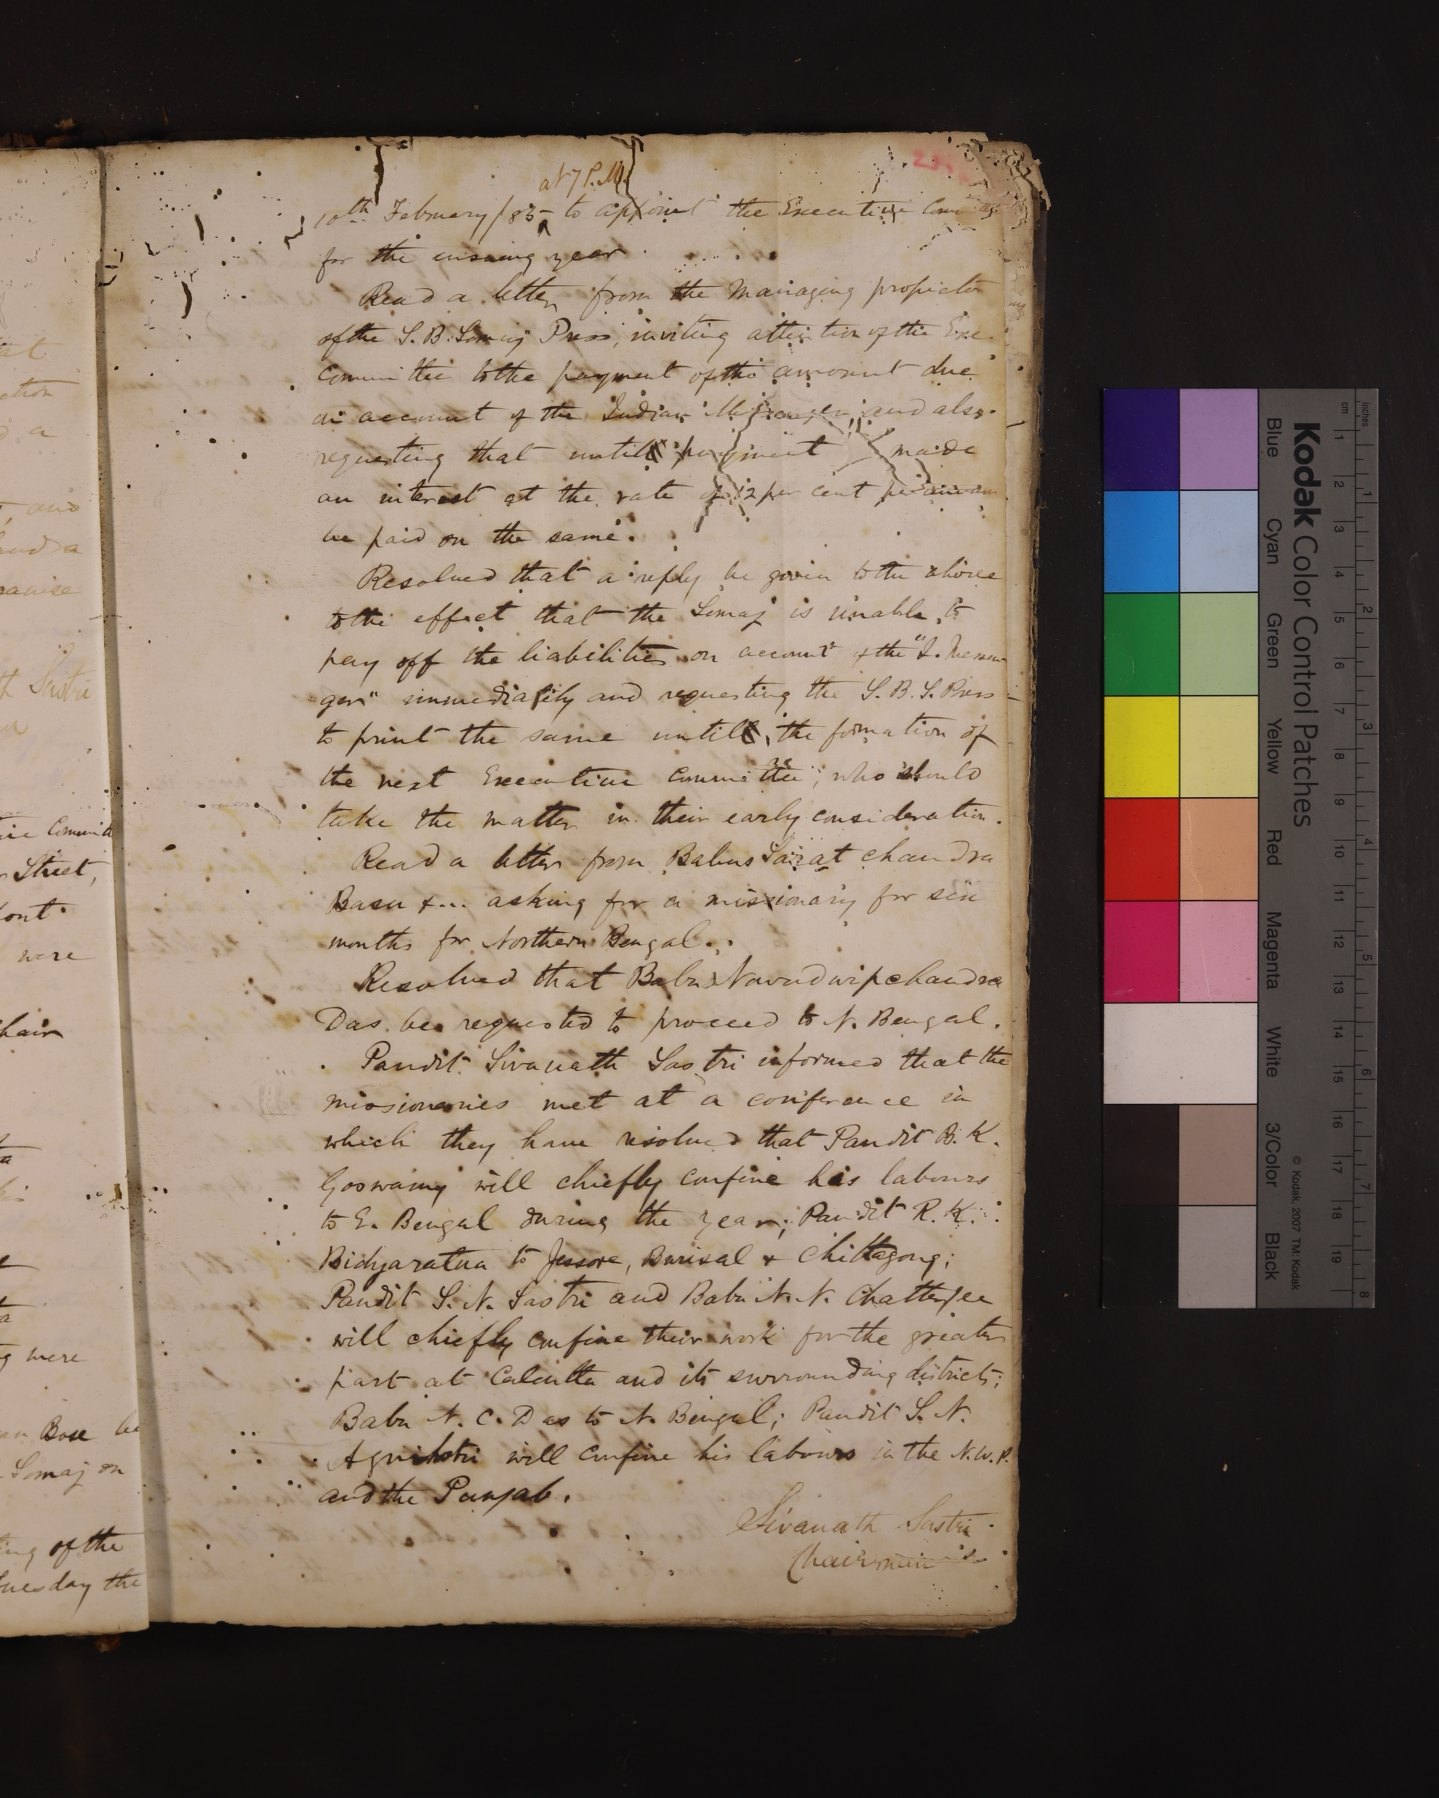 at 7 P.M.
10th February /85 to appoint the Executive
for the ensuing year
Read a letter from the Managing propietor
of the S. B. Somaj Press, inviting attention of the Exe.
Committee to the payment of the amount due
on account of the Indian Messenger, and also
requesting that until payment made
an interest at the rate of 12 per cent per annum
be paid on the same.
Resolved that a reply be given to the above
to the effect that the Somaj is unable to
pay off the liabilities on account of the "I. Messen
ger" immediately and requesting the S. B. S. Press
to print the same until the formation of
the next Executive Committee, who should
take the matter in their early consideration.
Read a letter from Babus Sarat chandra
Basu &... asking for a missionary for six
months for Northern Bengal.
Resolved that Babu Navadwipchandra
Das be requested to proceed to N. Bengal.
Pandit Sivanath Sastri informed that the
missionaries met at a conference in
which they have resolved that Pandit B. K.
Goswamy will chiefly confine his labours
to E. Bengal during the year; Pandit R. K.
Bidyaratna to Jessore, Barisal & Chittagong;
Pandit S. N. Sastri and Babu N. N. Chatterjee
will chiefly confine their work for the greater
part at Calcutta and its surrounding districts;
Babu N. C. Das to N. Bengal; Pandit S. N.
Agnihotri will confine his labours in the N.W.P.
and the Punjab.
Sivanath Sastri
Chairman
ction
a
and
Sastri
Street,
were
chair
were
Bose be
Somaj on
of the
Tuesday the
Kodak Color Control Patches
Blue Cyan Green Yellow Red Magenta White 3/Color Black
© Kodak, 2007 TM: Kodak
inches 1 2 3 4 5 6 7 8
cm 1 2 3 4 5 6 7 8 9 10 11 12 13 14 15 16 17 18 19